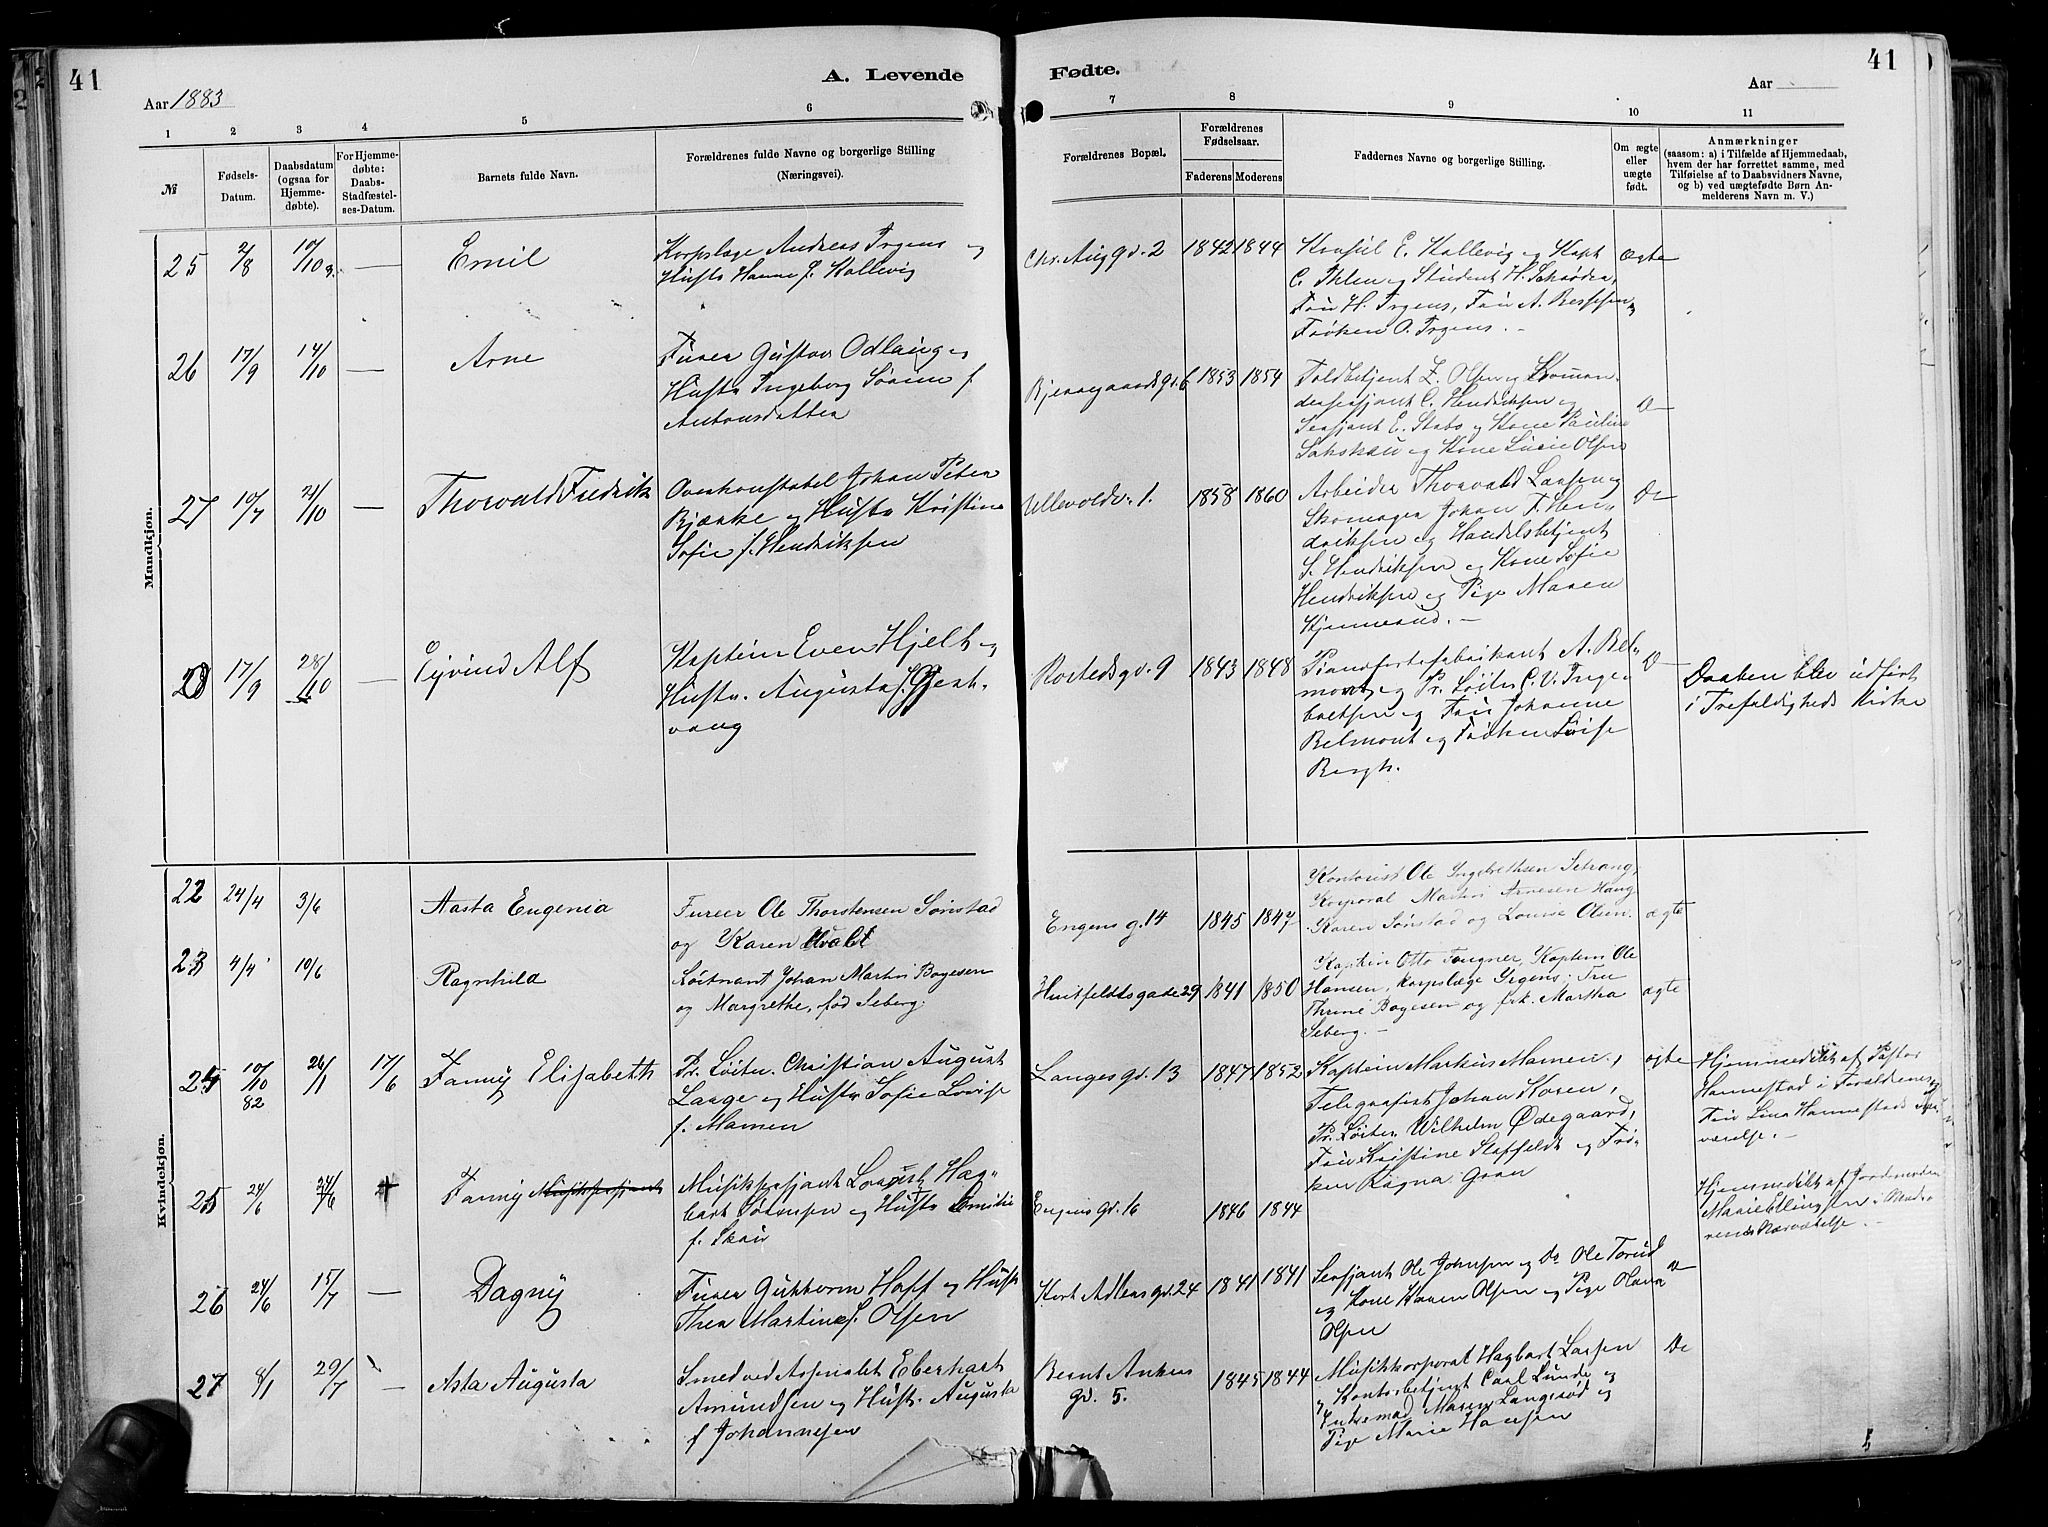 41
A. Levende
Fødte.
41
Aar 1883
Aar
1
2
3
4
5
6
7
8
9
10
11
№
Fødsels-
Datum.
Daabsdatum
(ogsaa for
Hjemme-
døbte).
For Hjemme-
døbte:
Daabs-
Stadfæstel-
ses-Datum.
Barnets fulde Navn.
Forældrenes fulde Navne og borgerlige Stilling
(Næringsvei).
Forældrenes Bopæl.
Forældrenes
Fødselsaar.
Faderens
Moderens
Faddernes Navne og borgerlige Stilling.
Om ægte
eller
uægte
født.
Anmærkninger
(saasom: a) i Tilfælde af Hjemmedaab,
hvem der har forrettet samme, med
Tilføielse af to Daabsvidners Navne,
og b) ved uægtefødte Børn An-
melderens Navn m. V.)
Mandkjøn.
25
2/8
10/10
—
Emil
Korpslæge Andreas Irgens og
Hustr Hanne f. Kallevig
Chr. Aug gd. 2
1842
1844
Konsul E. Kallevig og Kapt
C. Ihlen og Student H. Schrøder,
Fru H. Irgens, Fru A. og
Frøken O. Irgens. —
ægte
26
17/9
14/10
—
Arne
Furer Gustav Odlaug og
Hustr Ingeborg Sørine f.
Antonsdatter
Bjerregaardsgd. 6
1853
1854
Toldbetjent Z. Olsen og Kommandersersjant C. Hendriksen og
Sersjant E. Stabo og Kone Pauline
og Kone Lucie Olsen
D—
27
10/7
21/10
—
Thorvald Fredrik
Overkonstabel Johan Peter
Bjerke og Hustr Kristine
Sofie f. Hendriksen
Ullevoldv. 1.
1858
1860
Arbeider Thorvald Larsen og
Skomager Johan F. Hen-
driksen og Handelsbetjent
S. Hendriksen og Kone Sofie
Hendriksen og Pige Maren
De
28
17/9
28/10
—
Eyvind Alf
Kaptein Even Hjelt og
Hustr. Augusta f. Gjest-
vang
Rostedsgd. 9
1843
1848
Pianofortefabrikant A. Bel-
mont og Pr. Løitn C. V. Inge-
bretsen og Fru Johanne
Belmont og Frøken Lovise
Bergh.
D—
Daaben blev udført
i Trefoldigheds Kirke
Kvindekjøn.
22
24/4
3/6
Aasta Eugenia
Furer Ole Thorstensen Sønstad
og Karen
Engens g. 14
1845
1847
Kontorist Ole Ingebrethsen Setrang,
Korporal Martin Arnesen Haug
Karen Sønstad og Louise Olsen.
ægte
23
4/4
10/6
Ragnhild
Løitnant Johan Martin Bøgesen
og Margrethe, fød Seberg.
Huitfeldtsgade 29
1841
1850
Kaptein Otto Fougner, Kaptein Ole
Hansen, Korpslæge Irgens; Fru
Thrine Bøgesen og frk. Martha
Seberg. —
ægte
24
10/10
82
26/1
17/6
Fanny Elisabeth
Pr. Løitn. Christian August
Lange og Hustr Sofie Lovise
f. Mamen
Langes gd. 13
1847
1852
Kaptein Markus Mamen,
Telegrafist Johan Koren,
Pr. Løitn. Wilhelm Ødegaard,
Fru Kristine Staffeldt og Frø-
ken Ragna Gran
ægte
Hjemmedøbt af Pastor
Hannestad i Forældrenes og
Fru Lina Hannestads Nær-
værelse. —
25
24/6
24/6
Fanny Musiksersjant
Musiksersjant Laurits Hag-
bart Sørensen og Hustr Emilie
f. Skau
Engens gd. 16
1846
1844
Hjemmedøbt af Jordemoder
Marie Ellingsen i Mode-
rens Nærværelse. —
26
24/6
15/7
—
Dagny
Furer Guttorm Hoff og Hustr
Thea Martine f. Olsen
Kort Adlers gd. 24
1841
1841
Sersjant Ole Johnsen og Do Ole Torud
og Kone Karen Olsen og Pige Olava
Olsen
D—
27
8/1
29/7
—
Asta Augusta
Smed ved Arsenalet Eberhart
Amundsen og Hustr. Augusta
f Johannesen
Bernt Ankers
gd. 5.
1845
1844
Musikkorporal Hagbart Larsen
og Kontorbetjent Carl Lunde og
Enkemad. Maren Langerød og
Pige Marie Hansen
De